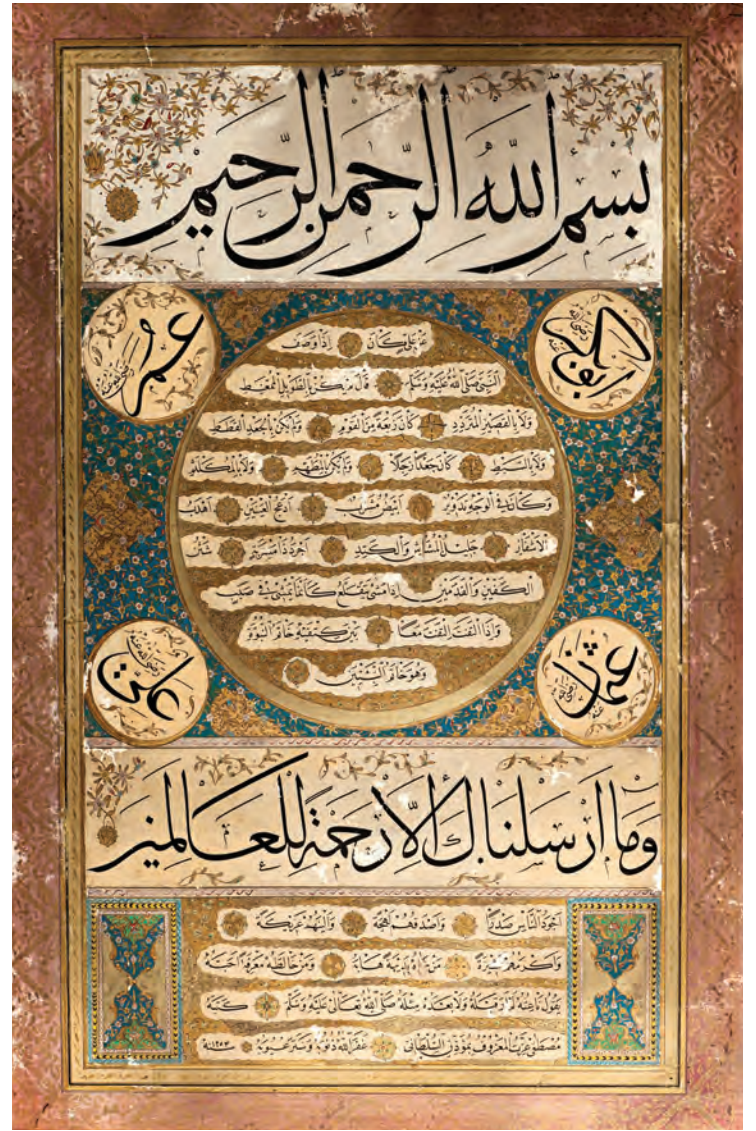 بِسْمِ اللهِ الرَّحْمٰنِ الرَّحِيمِ
ابوبكر رضي الله عنه
عمر رضي الله عنه
عَنْ عَلِيٍّ كَانَ اِذَا وَصَفَ
النَّبِيَّ صَلَّى اللهُ عَلَيْهِ وَسَلَّمَ قَالَ لَمْ يَكُنْ بِالطَّوِيلِ الْمُمَغَّطِ
وَلَا بِالْقَصِيرِ الْمُتَرَدِّدِ كَانَ رَبْعَةً مِنَ الْقَوْمِ وَلَمْ يَكُنْ بِالْجَعْدِ الْقَطَطِ
وَلَا بِالسَّبِطِ كَانَ جَعْدًا رَجِلًا وَلَمْ يَكُنْ بِالْمُطَهَّمِ وَلَا بِالْمُكَلْثَمِ
وَكَانَ فِي الْوَجْهِ تَدْوِيرٌ اَبْيَضُ مُشْرَبٌ اَدْعَجُ الْعَيْنَيْنِ اَهْدَبُ
الْاَشْفَارِ جَلِيلُ الْمُشَاشِ وَالْكَتَدِ اَجْرَدُ ذُو مَسْرُبَةٍ شَثْنُ
الْكَفَّيْنِ وَالْقَدَمَيْنِ اِذَا مَشٰى يَتَقَلَّعُ كَاَنَّمَا يَمْشِي فِي صَبَبٍ
وَاِذَا الْتَفَتَ الْتَفَتَ مَعًا بَيْنَ كَتِفَيْهِ خَاتَمُ النُّبُوَّةِ
وَهُوَ خَاتَمُ النَّبِيِّينَ
عثمان رضي الله عنه
علي رضي الله عنه
وَمَا اَرْسَلْنَاكَ اِلَّا رَحْمَةً لِلْعَالَمِينَ
اَجْوَدُ النَّاسِ صَدْرًا وَاَصْدَقُهُمْ لَهْجَةً وَاَلْيَنُهُمْ عَرِيكَةً
وَاَكْرَمُهُمْ عِشْرَةً مَنْ رَآهُ بَدِيهَةً هَابَهُ وَمَنْ خَالَطَهُ مَعْرِفَةً اَحَبَّهُ
يَقُولُ نَاعِتُهُ لَمْ اَرَ قَبْلَهُ وَلَا بَعْدَهُ مِثْلَهُ صَلَّى اللهُ تَعَالٰى عَلَيْهِ وَسَلَّمَ كَتَبَهُ
مُصْطَفٰى عِزَّتُ الْمَعْرُوفُ بِمُؤَذِّنِ السُّلْطَانِي غَفَرَ اللهُ ذُنُوبَهُ وَسَتَرَ عُيُوبَهُ سنة